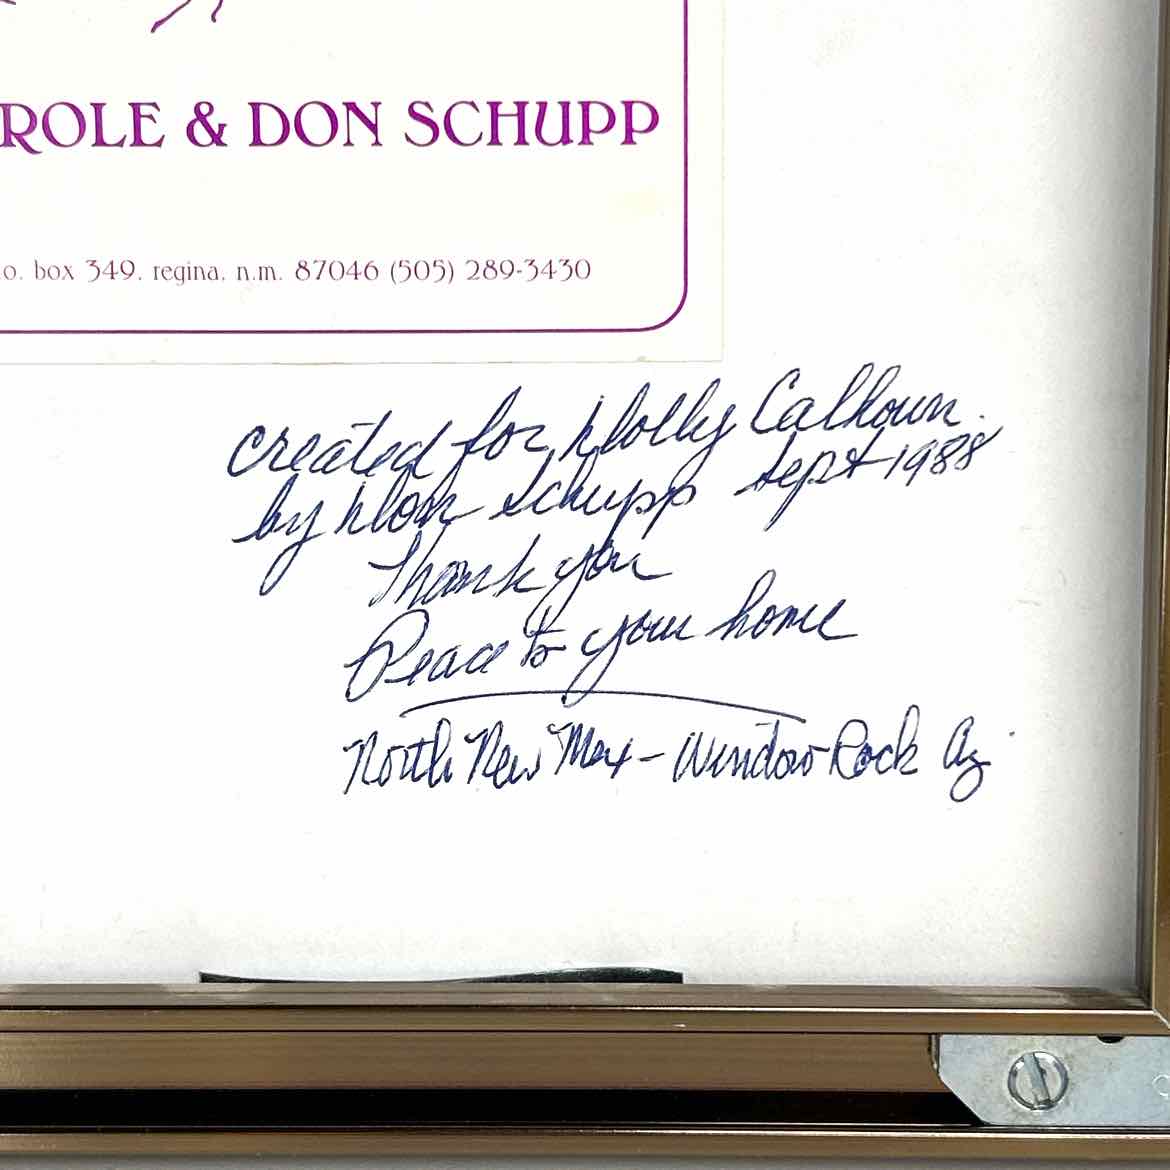 ROLE & DON SCHUPP
o. box 349. regina. n.m. 87046 (505) 289-3430
created for Dolly Calhoun.
by Don Schupp Sept 1988
Thank you
Peace to your home
North New Mex - Window Rock Az.